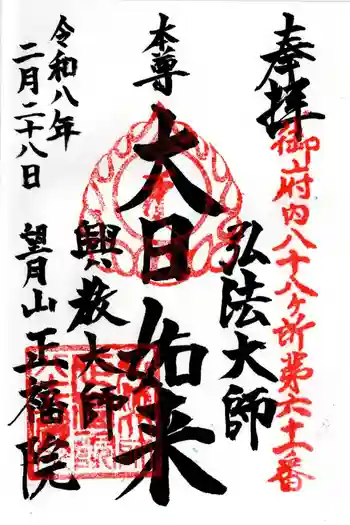 奉拝
御府内八十八ヶ所第六十一番
弘法大師
本尊
大日如来
興教大師
令和八年
二月二十八日
望月山 正福院